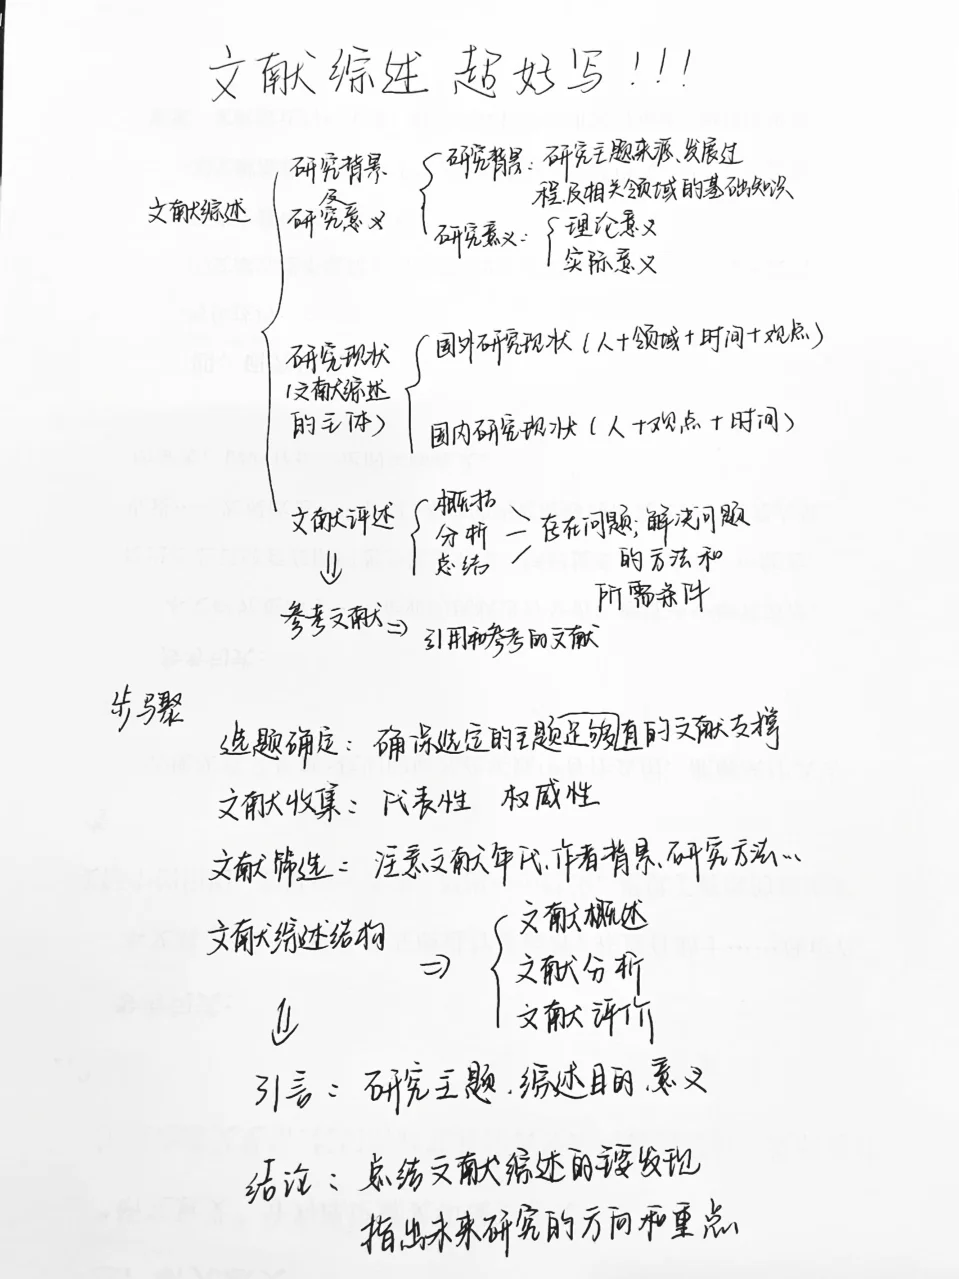 文献综述 超好写!!!
文献综述
研究背景
及
研究意义
研究背景:研究主题来源、发展过
程及相关领域的基础知识
研究意义:
理论意义
实际意义
研究现状
(文献综述
的主体)
国外研究现状(人+领域+时间+观点)
国内研究现状(人+观点+时间)
文献评述
概括
分析
总结
存在问题;解决问题
的方法和
所需条件
参考文献⇒引用和参考的文献
步骤
选题确定:确保选定的主题足够值的文献支撑
文献收集:代表性 权威性
文献筛选:注意文献年代、作者背景、研究方法...
文献综述结构⇒
文献概述
文献分析
文献评价
引言:研究主题、综述目的、意义
结论:总结文献综述的主要发现
指出未来研究的方向和重点